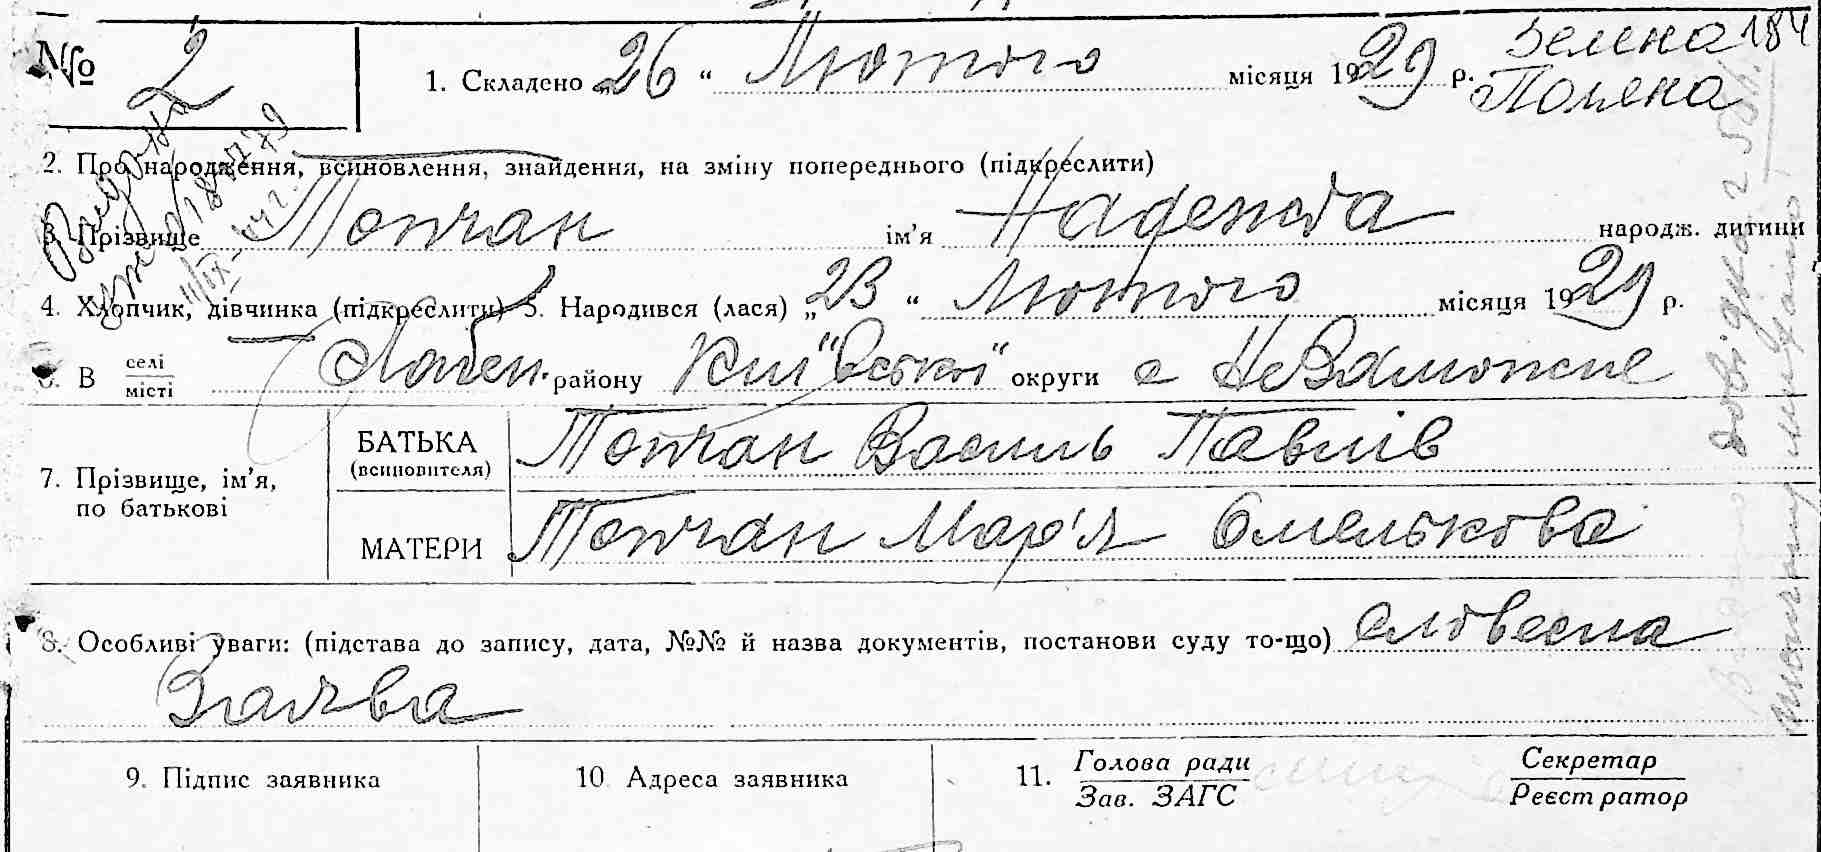 № 2 1. Складено „26“ Лютого місяця 1929 р. Зелена 184
Поляна
2. Про народження, всиновлення, знайдення, на зміну попереднього (підкреслити)
3. Прізвище Топчан ім'я Надежда народж. дитини
4. Хлопчик, дівчинка (підкреслити) 5. Народився (лася) „23“ Лютого місяця 1929 р.
6. В селі місті району Київської округи с Незаможне
7. Прізвище, ім'я, по батькові
БАТЬКА (всиновителя) Топчан Василь Павлів
МАТЕРИ Топчан Мар'я Омелькова
8. Особливі уваги: (підстава до запису, дата, №№ й назва документів, постанови суду то-що) словесна
заява
9. Підпис заявника 10 Адреса заявника 11. Голова ради Секретар
Зав. ЗАГС Реєстратор